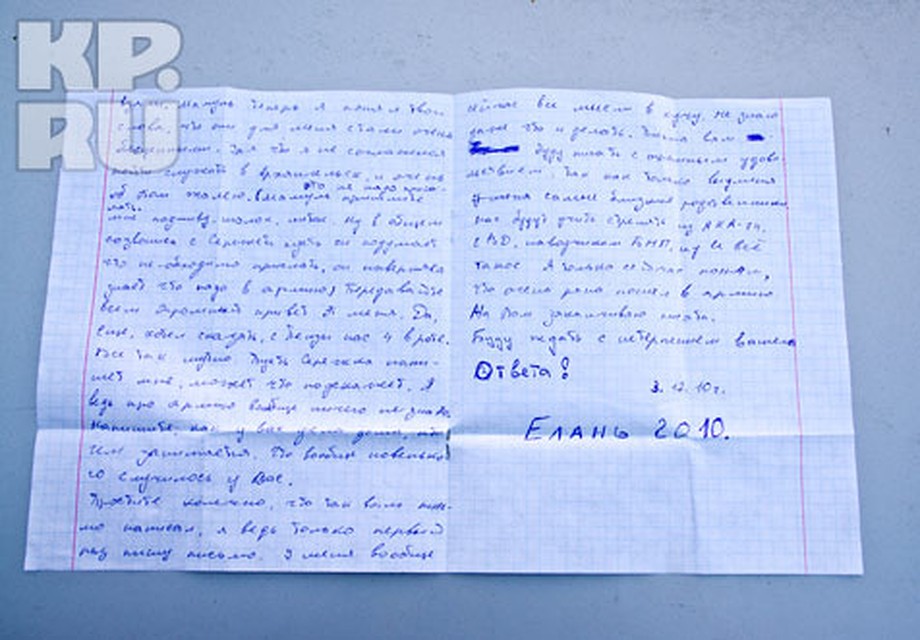 KP.
RU
мамуль теперь я понял твои
слова, что они для меня стали очень
я не согласился
пойти служить в Архангельск, и очень
об этом жалею. Мамуля пришлите
это не надо
мне подшиву, иголок, ниток. Ну в общем
созвонись с Сережей пусть он подумает
что необходимо прислать, он наверняка
знает что надо в армии) Передавайте
всем огромный привет от меня. Да,
еще, хотел сказать, с Пензы нас 4 в роте.
Все так нудно. Пусть Сережка напи-
шет мне, может что подскажет. Я
ведь про армию вообще ничего не знаю.
Напишите, как у вас дела дома, кто
чем занимается. Что вообще новенько-
го случилось у Вас.
Простите конечно, что так вам
написал, я ведь только первый
раз пишу письмо. У меня вообще
сейчас все мысли в кучу, не знаю
даже что и делать. вам
буду писать с огромным удово-
льствием. Так как только вы у меня
самые близкие родственники
нас будут учить стрелять из АКА-74,
СВД, наводчиком БМП, ну и всё
такое. Я только сейчас понял,
что очень рано пошел в армию.
На этом заканчиваю писать.
Буду ждать с нетерпением вашего
Ответа!
3.12.10г.
Елань 2010.